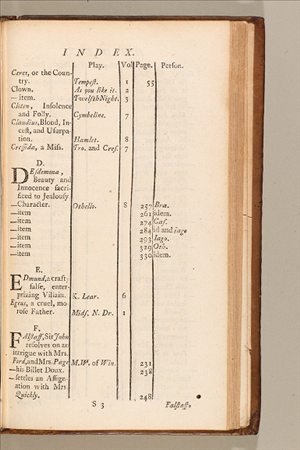 INDEX.
Play. Vol Page. Person.
Ceres, or the Coun-
try. Tempest. 1 55
Clown. As you like it. 2
— item. Twelfth Night. 3
Cloten, Insolence
and Folly. Cymbeline. 7
Claudius, Blood, In-
cest, and Usurpa-
tion. Hamlet. 8
Cressida, a Miss. Tro. and Cres. 7
D.
DEsdemona,
Beauty and
Innocence sacri-
ficed to Jealousy
—Character. Othello. 8 257 Bra.
—item 261 idem.
—item 274 Cas.
—item 284 id and Iago
—item 293 Iago.
—item 329 Oth.
—item 330 idem.
E.
EDmund, a craft-
false, enter-
prizing Villain. K. Lear. 6
Egeus, a cruel, mo-
rose Father. Mids. N. Dr. 1
F.
FAlstaff, Sir John
resolves on an
intrigue with Mrs.
Ford, and Mrs. Page M. W. of Win. 231
—his Billet Doux. 238
—settles an Assig-
nation with Mrs.
Quickly. 248
S 3 Falstaff,